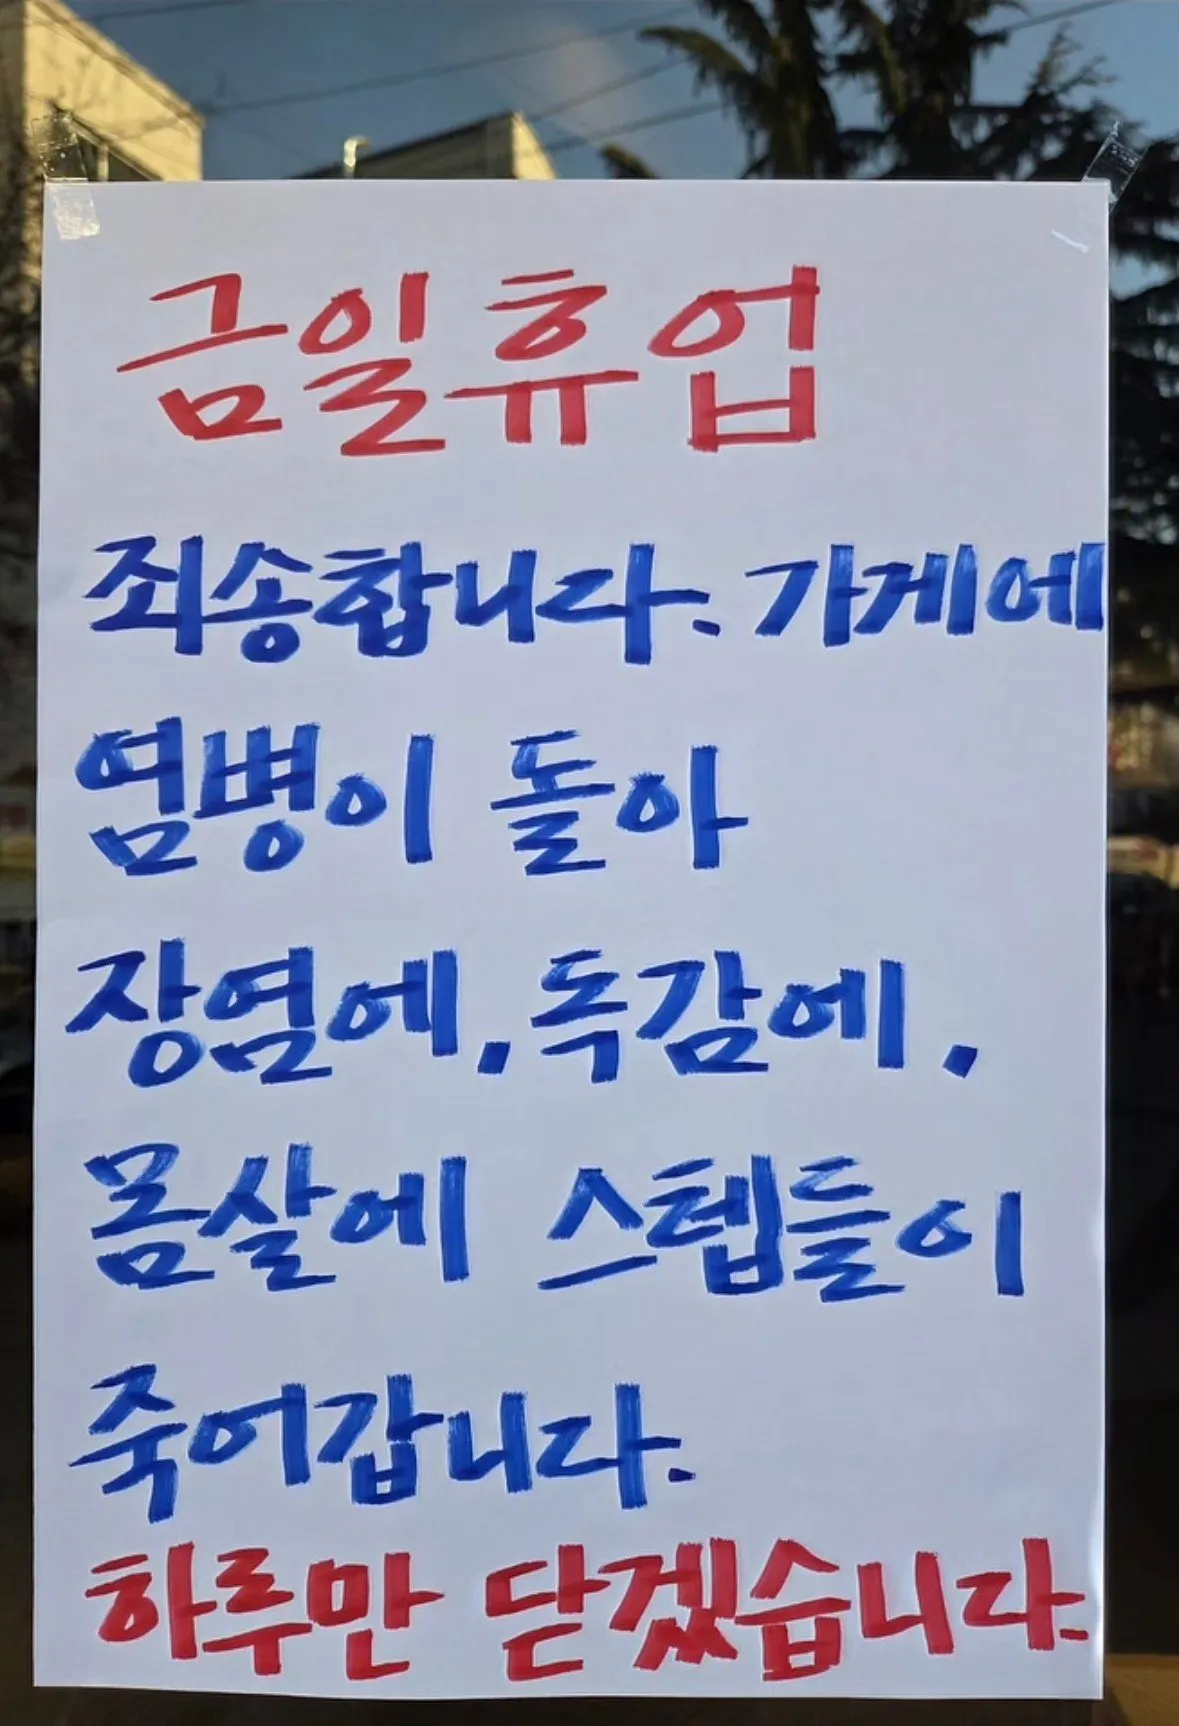 금일휴업
죄송합니다. 가게에
염병이 돌아
장염에, 독감에,
몸살에 스텝들이
죽어갑니다.
하루만 닫겠습니다.